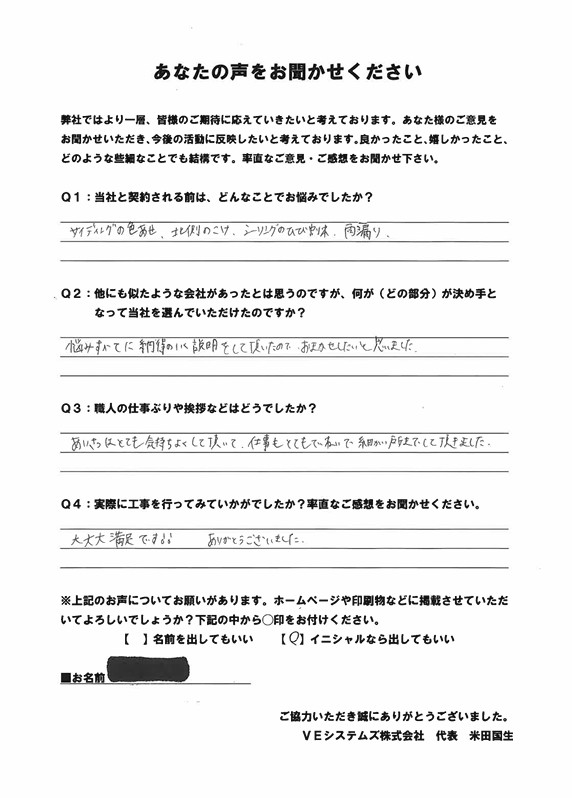 あなたの声をお聞かせください
弊社ではより一層、皆様のご期待に応えていきたいと考えております。あなた様のご意見を
お聞かせいただき、今後の活動に反映したいと考えております。良かったこと、嬉しかったこと、
どのような些細なことでも結構です。率直なご意見・ご感想をお聞かせ下さい。
Q1：当社と契約される前は、どんなことでお悩みでしたか？
サイディングの色あせ、北側のこけ、シーリングのひび割れ、雨漏り、
Q2：他にも似たような会社があったとは思うのですが、何が（どの部分）が決め手と
なって当社を選んでいただけたのですか？
悩みすべてに納得のいく説明をして頂いたので、おまかせしたいと思いました。
Q3：職人の仕事ぶりや挨拶などはどうでしたか？
あいさつはとても気持ちよくして頂いて、仕事もとてもてい寧で細かい所までして頂きました。
Q4：実際に工事を行ってみていかがでしたか？率直なご感想をお聞かせください。
大大大満足です!! ありがとうございました。
※上記のお声についてお願いがあります。ホームページや印刷物などに掲載させていただ
いてよろしいでしょうか？下記の中から○印をお付けください。
【 】名前を出してもいい 【○】イニシャルなら出してもいい
■お名前
ご協力いただき誠にありがとうございました。
VEシステムズ株式会社 代表 米田国生